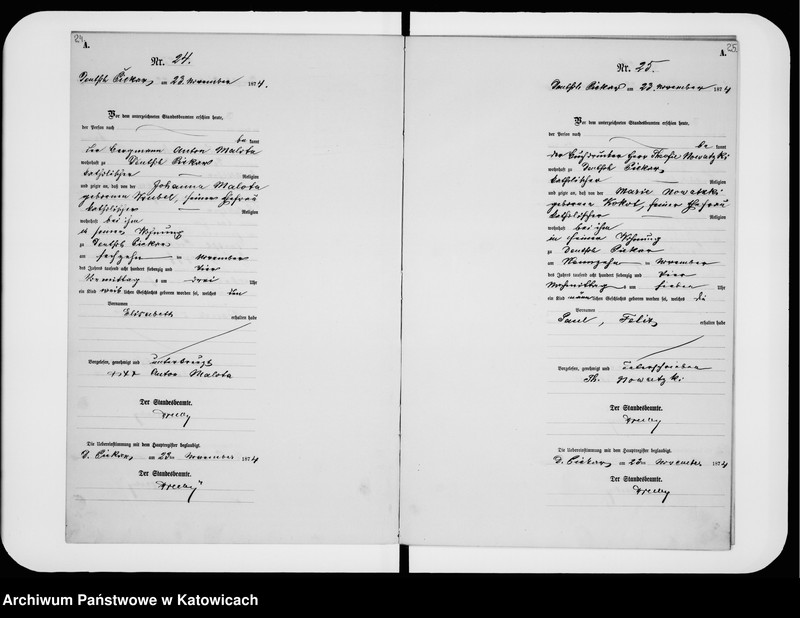 24
A.
Nr. 24.
Deutsch Piekar, am 23. November 1874.
Vor dem unterzeichneten Standesbeamten erschien heute,
der Person nach
be kannt
der Bergmann Anton Malota
wohnhaft zu Deutsch Piekar
katholischer Religion
und zeigte an, daß von der Johanna Malota
geborenen seiner Ehefrau
katholischer Religion
wohnhaft bei ihm
in seiner Wohnung
zu Deutsch Piekar
am sechzehn ten November
des Jahres tausend acht hundert siebenzig und vier
Vormittags um drei Uhr
ein Kind weib lichen Geschlechts geboren worden sei, welches den
Vornamen
Elisabeth
erhalten habe
Vorgelesen, genehmigt und unterkreuzt
+++ Anton Malota
Der Standesbeamte.
Die Uebereinstimmung mit dem Hauptregister beglaubigt.
D. Piekar, am 23ten November 1874
Der Standesbeamte.
25
A.
Nr. 25.
Deutsch Piekar am 23. November 1874
Vor dem unterzeichneten Standesbeamten erschien heute,
der Person nach
be kannt
der Herr Nowatzki
wohnhaft zu Deutsch Piekar,
katholischer Religion
und zeigte an, daß von der Marie Nowatzki
geborenen Kokot, seiner Ehefrau
katholischer Religion
wohnhaft bei ihm
in seiner Wohnung
zu Deutsch Piekar
am Neunzehn ten November
des Jahres tausend acht hundert siebenzig und vier
Nachmittags um sieben Uhr
ein Kind männ lichen Geschlechts geboren worden sei, welches die
Vornamen
Paul, Felix,
erhalten habe
Vorgelesen, genehmigt und
Th. Nowatzki
Der Standesbeamte.
Die Uebereinstimmung mit dem Hauptregister beglaubigt.
D. Piekar, am 23ten November 1874
Der Standesbeamte.
Archiwum Państwowe w Katowicach